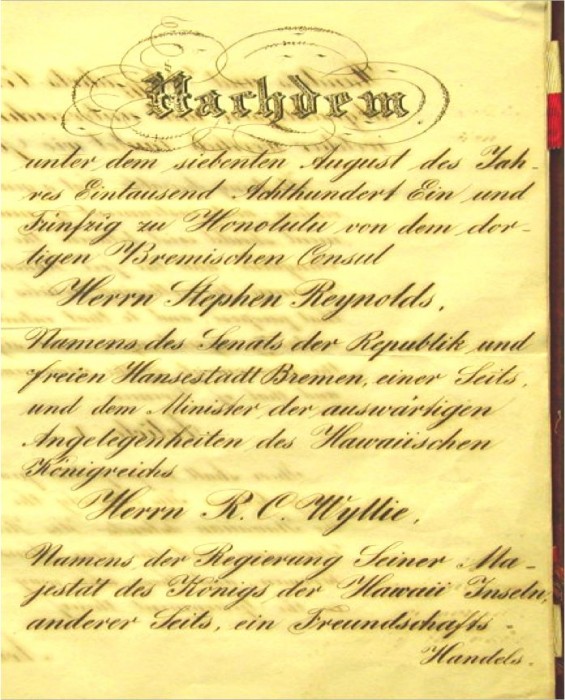 Nachdem
unter dem siebenten August des Jah-
res Eintausend Achthundert Ein und
Fünfzig zu Honolulu von dem dor-
tigen Bremischen Consul
Herrn Stephen Reynolds,
Namens des Senats der Republik und
freien Hansestadt Bremen, einer Seits,
und dem Minister der auswärtigen
Angelegenheiten des Hawaiischen
Königreichs
Herrn R. C. Wyllie,
Namens der Regierung Seiner Ma-
jestät des Königs der Hawaii Inseln,
anderer Seits, ein Freundschafts-
Handels-